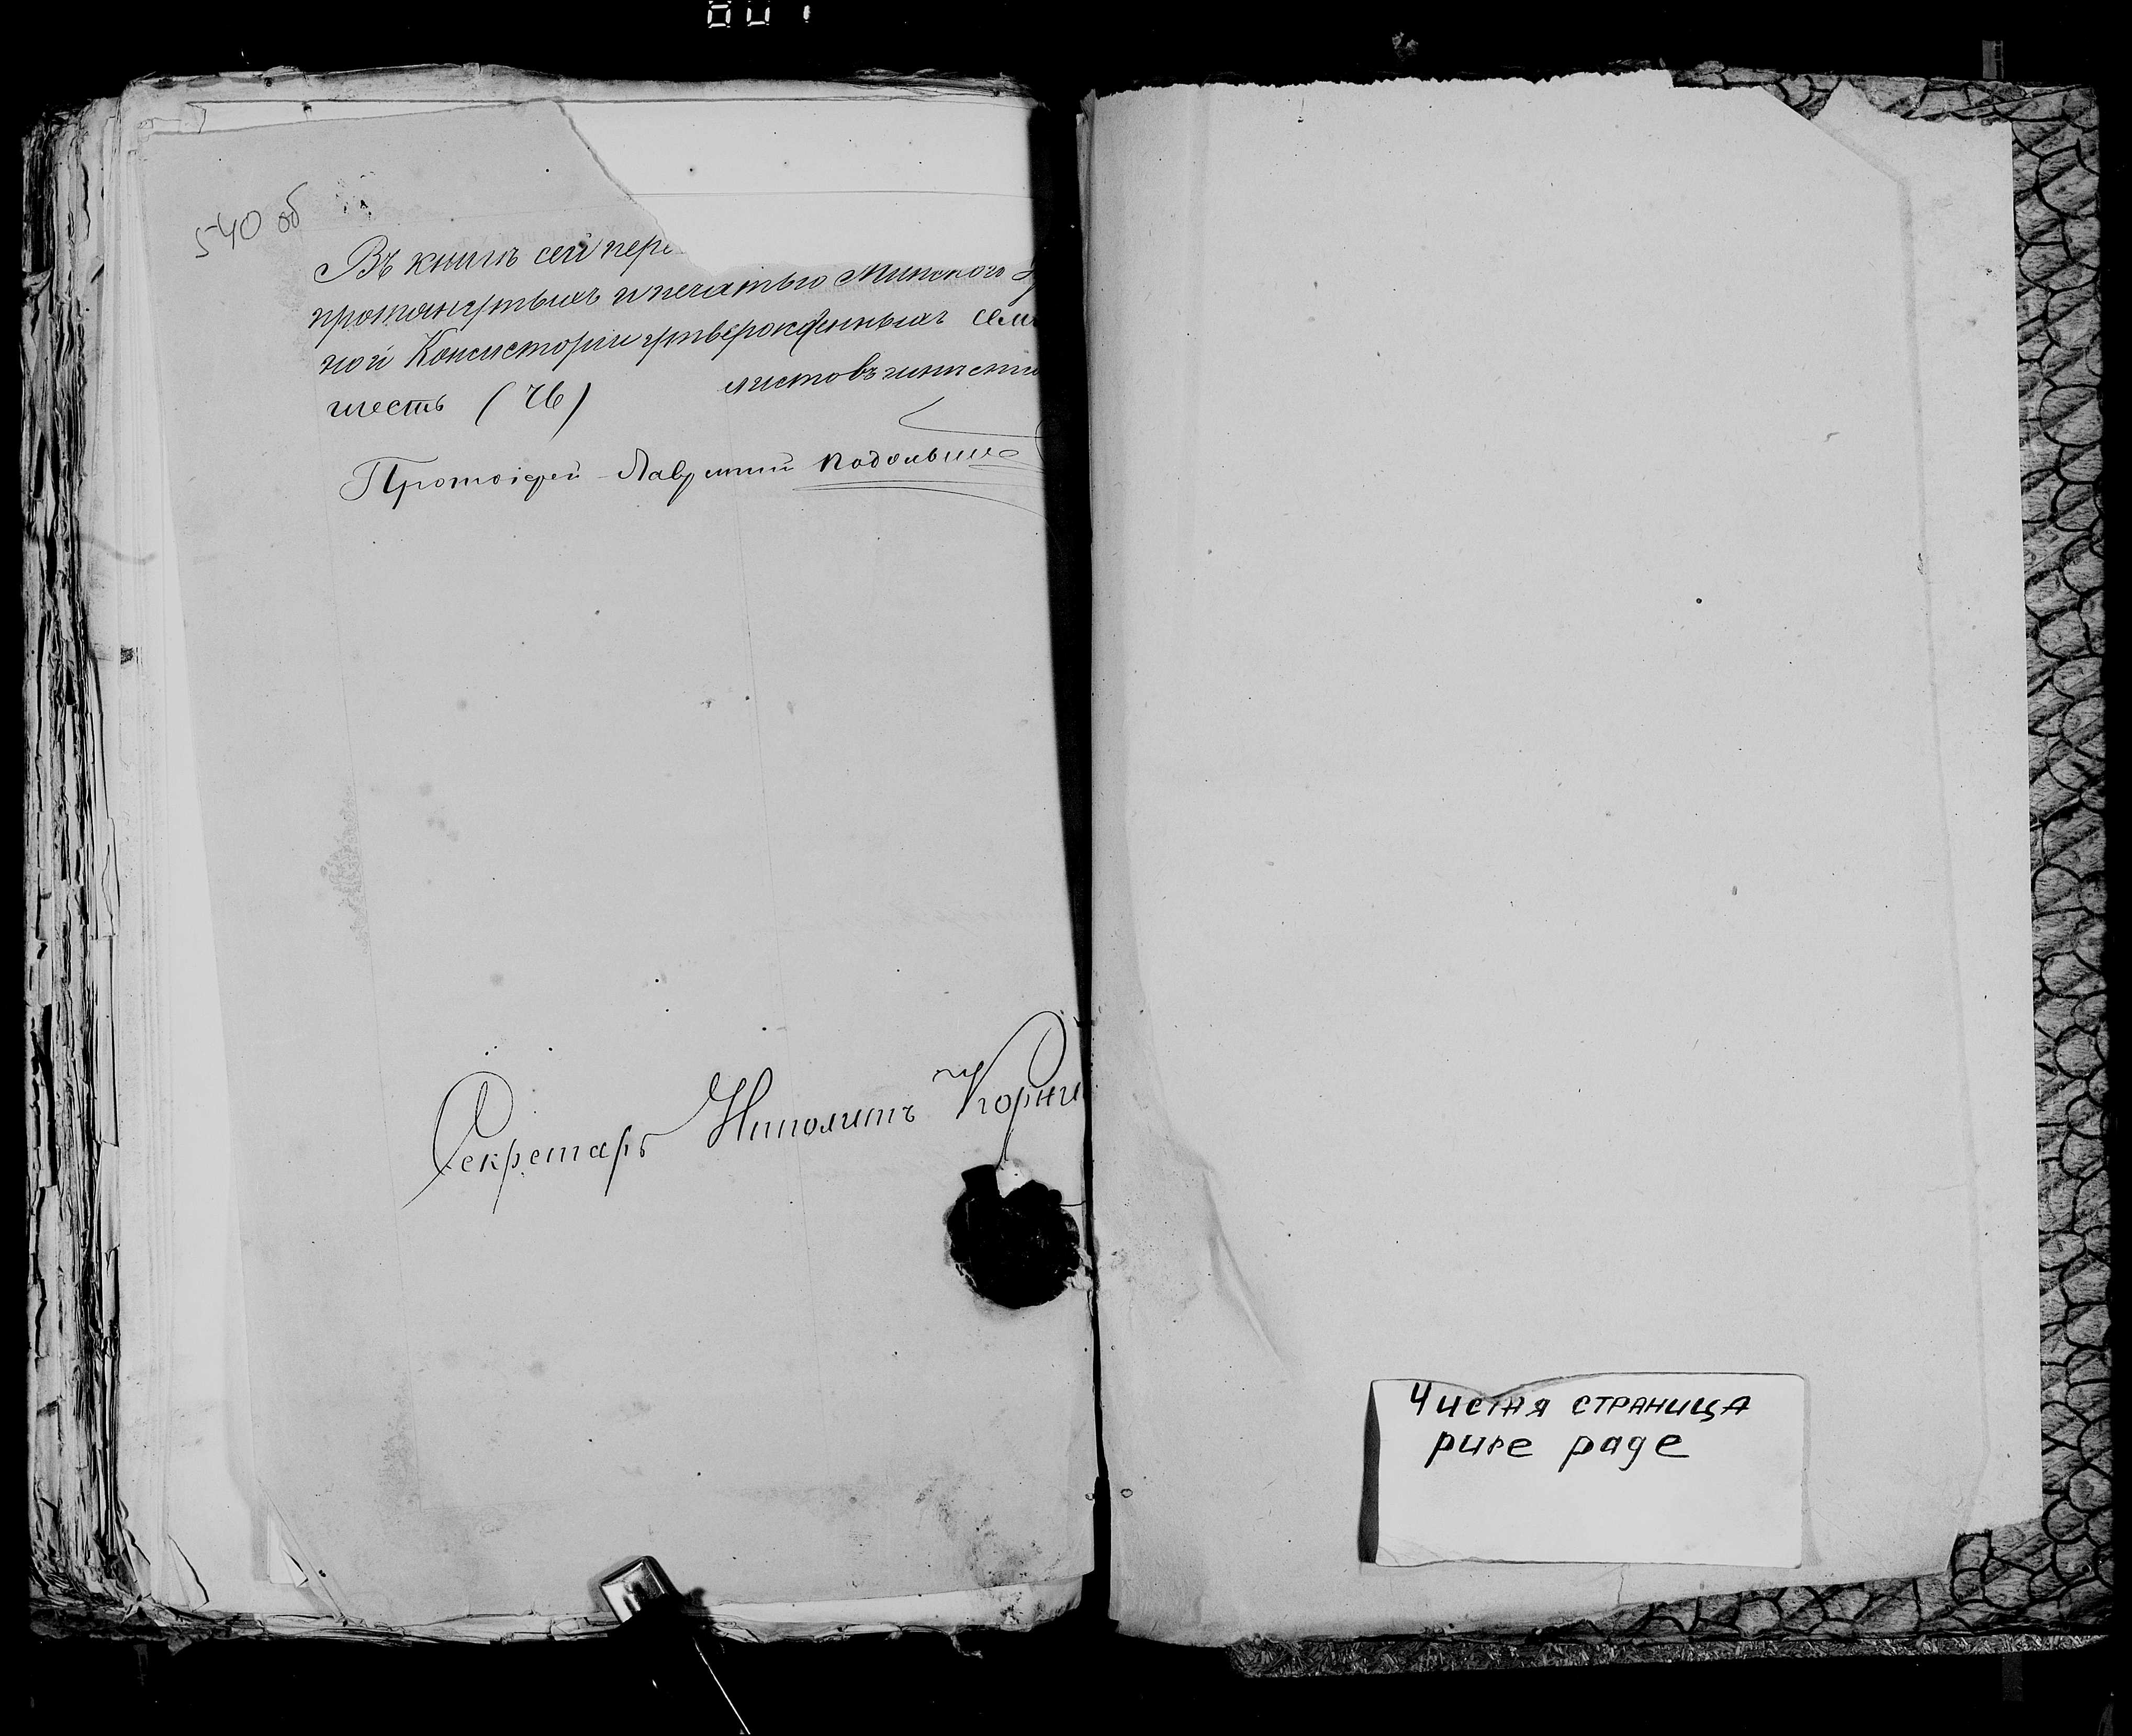 540 об
Въ книгѣ сей пере
протянутыхъ и печатью Минской
ной Консисторіи утвержденныхъ семь
листовъ
шесть (76)
Протоіерей Лаврентій Подольш
Секретарь Ипполитъ Корни
Чистая страница
pure page